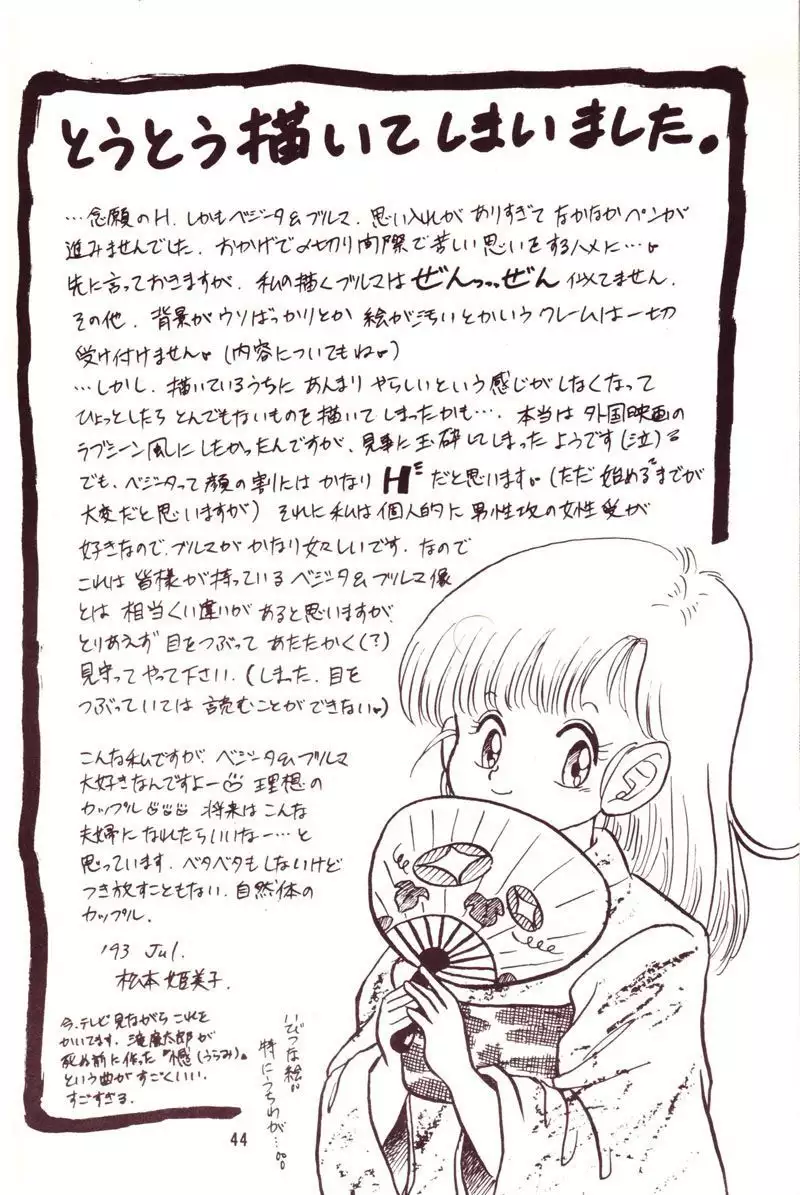 とうとう描いてしまいました。
…念願のH. しかもベジータ&ブルマ. 思い入れが ありすぎて なかなか ペンが
進みませんでした. おかげで〆切り間際で苦しい思いをするハメに…。
先に言っておきますが. 私の描くブルマは ぜんっっぜん 似てません.
その他. 背景がウソばっかりとか 絵が汚いとかいう クレームは一切
受け付けません。(内容についてもね。)
…しかし. 描いているうちに あんまり やらしいという感じがしなくなって
ひょっとしたら とんでもないものを描いてしまったかも…. 本当は 外国映画の
ラブシーン風にしたかったんですが、見事に玉砕してしまったようです(泣)
でも、ベジータって顔の割には かなり H だと思います。(ただ "始める"までが
大変だと思いますが) それに私は個人的に 男性攻の女性受が
好きなので、ブルマが かなり女々しいです. なので
これは 皆様が持っている ベジータ&ブルマ像
とは 相当くい違いが あると思いますが、
とりあえず 目をつぶって あたたかく(?)
見守ってやって下さい. (しまった. 目を
つぶっていては 読むことができない。)
こんな私ですが、ベジータ&ブルマ
大好きなんですよー 理想の
カップル 将来は こんな
夫婦に なれたらいいなー…と
思っています. ベタベタもしないけど
つき放すこともない. 自然体の
カップル.
'93 Jul.
松本 姫美子.
今、テレビ見ながら これを
かいてます. 滝廉太郎が
死ぬ前に作った『憾(うらみ)』
という曲が すごくいい.
すごすぎる.
いびつな絵…
特にうちわが…
44